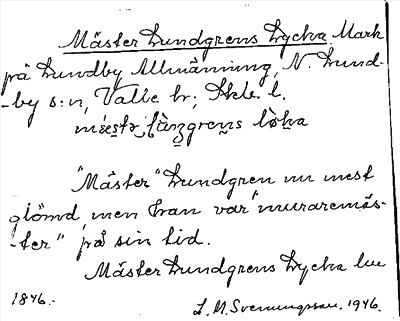 Mäster Lundgrens Lycka Mark
på Lundby Allmänning, N. Lund-
-by s:n, Valle hr, Skb. l.
"Mäster" Lundgren nu mest
glömd, men han var "muraremäs-
-ter" på sin tid.
Mäster Lundgrens Lycka
1846.
L. M. Svenungsson. 1946.